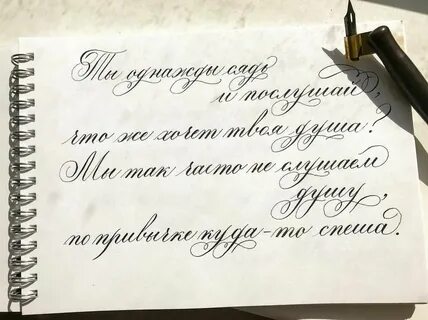 Ты однажды сядь
и послушай,
что же хочет твоя душа?
Мы так часто не слушаем
душу,
по привычке куда-то спеша.